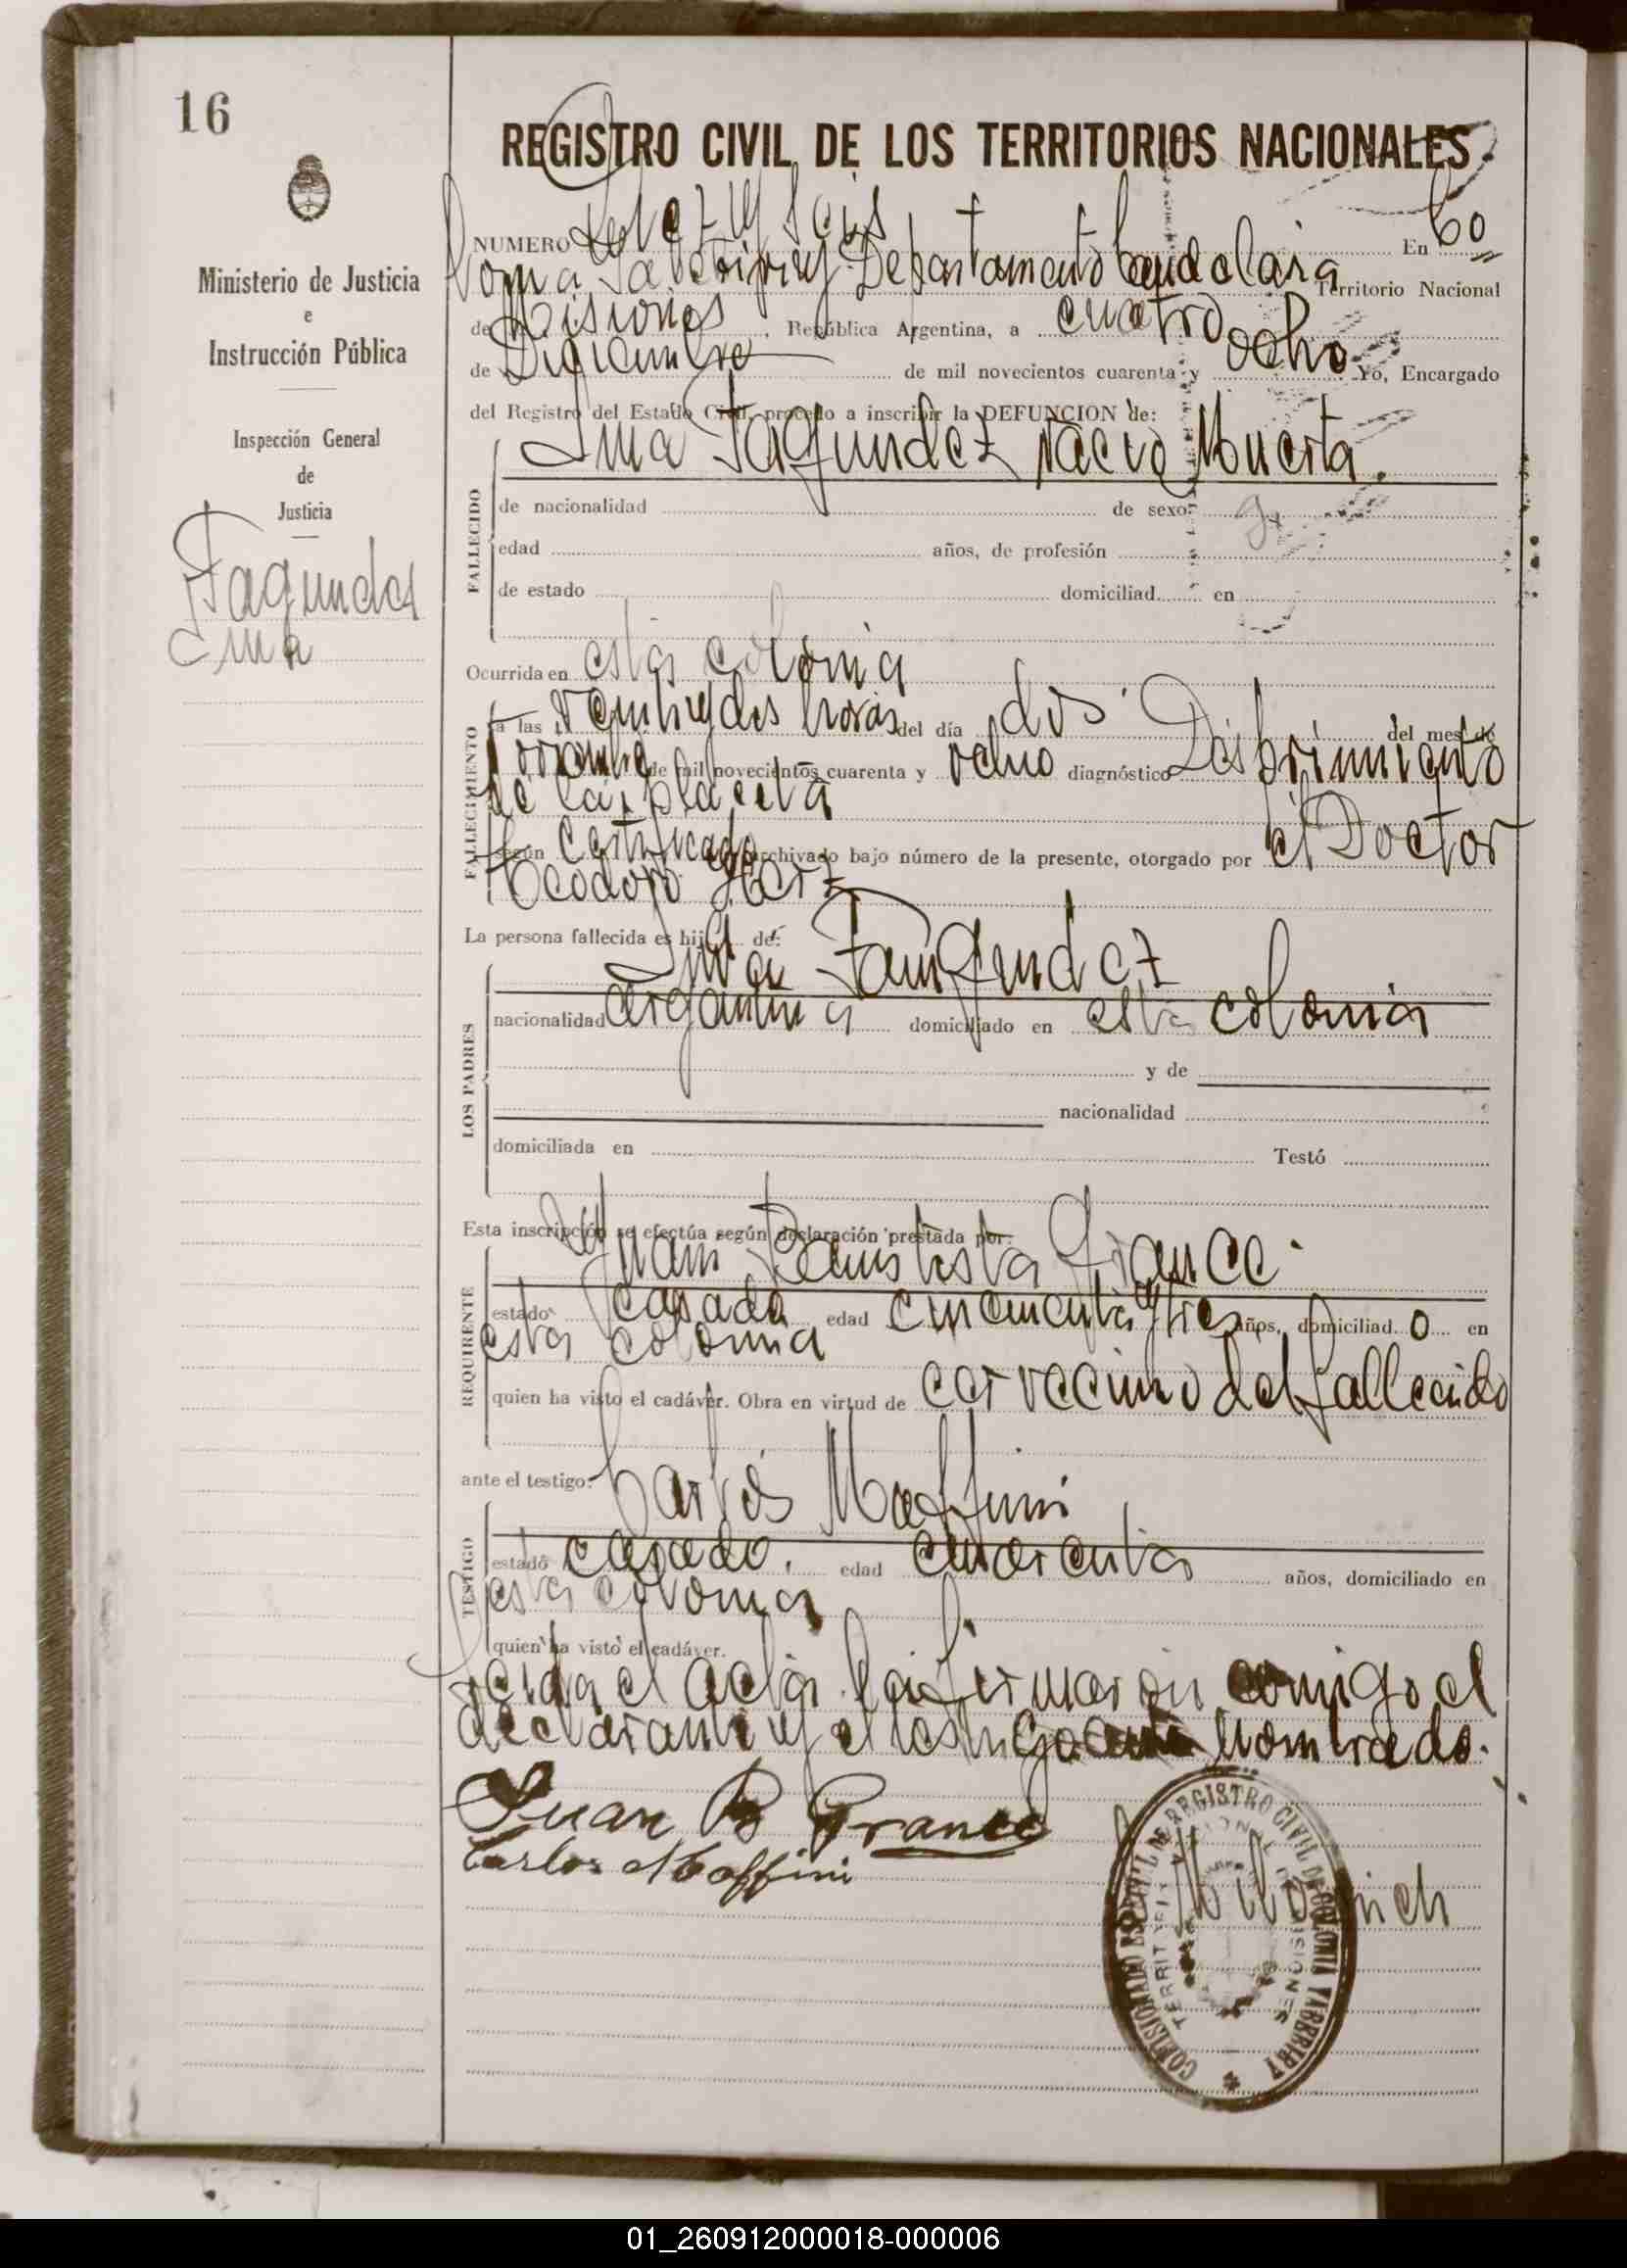 16
REGISTRO CIVIL DE LOS TERRITORIOS NACIONALES
Ministerio de Justicia
e
Instrucción Pública
Inspección General
de
Justicia
Fagundes
NUMERO y seis En Co
lonia Departamento Candelaria Territorio Nacional
de Misiones, República Argentina, a cuatro
de Diciembre de mil novecientos cuarenta y ocho Yo, Encargado
del Registro del Estado Civil, procedo a inscribir la DEFUNCION de:
Fagundez nacio Muerta.
FALLECIDO
de nacionalidad de sexo
edad años, de profesión
de estado domiciliad en
Ocurrida en esta colonia
FALLECIMIENTO
a las horas del día dos del mes de
de mil novecientos cuarenta y ocho diagnóstico Desprimiento
de la placeta
según certificado archivado bajo número de la presente, otorgado por el Doctor
Teodoro
La persona fallecida es hija de:
LOS PADRES
nacionalidad argentina domiciliado en esta colonia
y de
nacionalidad
domiciliada en Testó
Esta inscripción se efectúa según declaración prestada por:
REQUIRENTE
Juan Baustista Grance
estado casado edad cincuenta y tres años, domiciliad o en
esta colonia
quien ha visto el cadáver. Obra en virtud de ser vecino del fallecido
ante el testigo: Carlos Maffini
TESTIGO
estado casado. edad cuarenta años, domiciliado en
esta colonia
quien ha visto el cadáver.
Leida el acta la firmaron comigo el
declarante y el testigo nombrado.
Juan B Grance
Carlos Maffini
COMISIONADO ESPECIAL DE REGISTRO CIVIL DE COLONIA YABEBIRY
TERRITORIO NACIONAL DE MISIONES
01_260912000018-000006